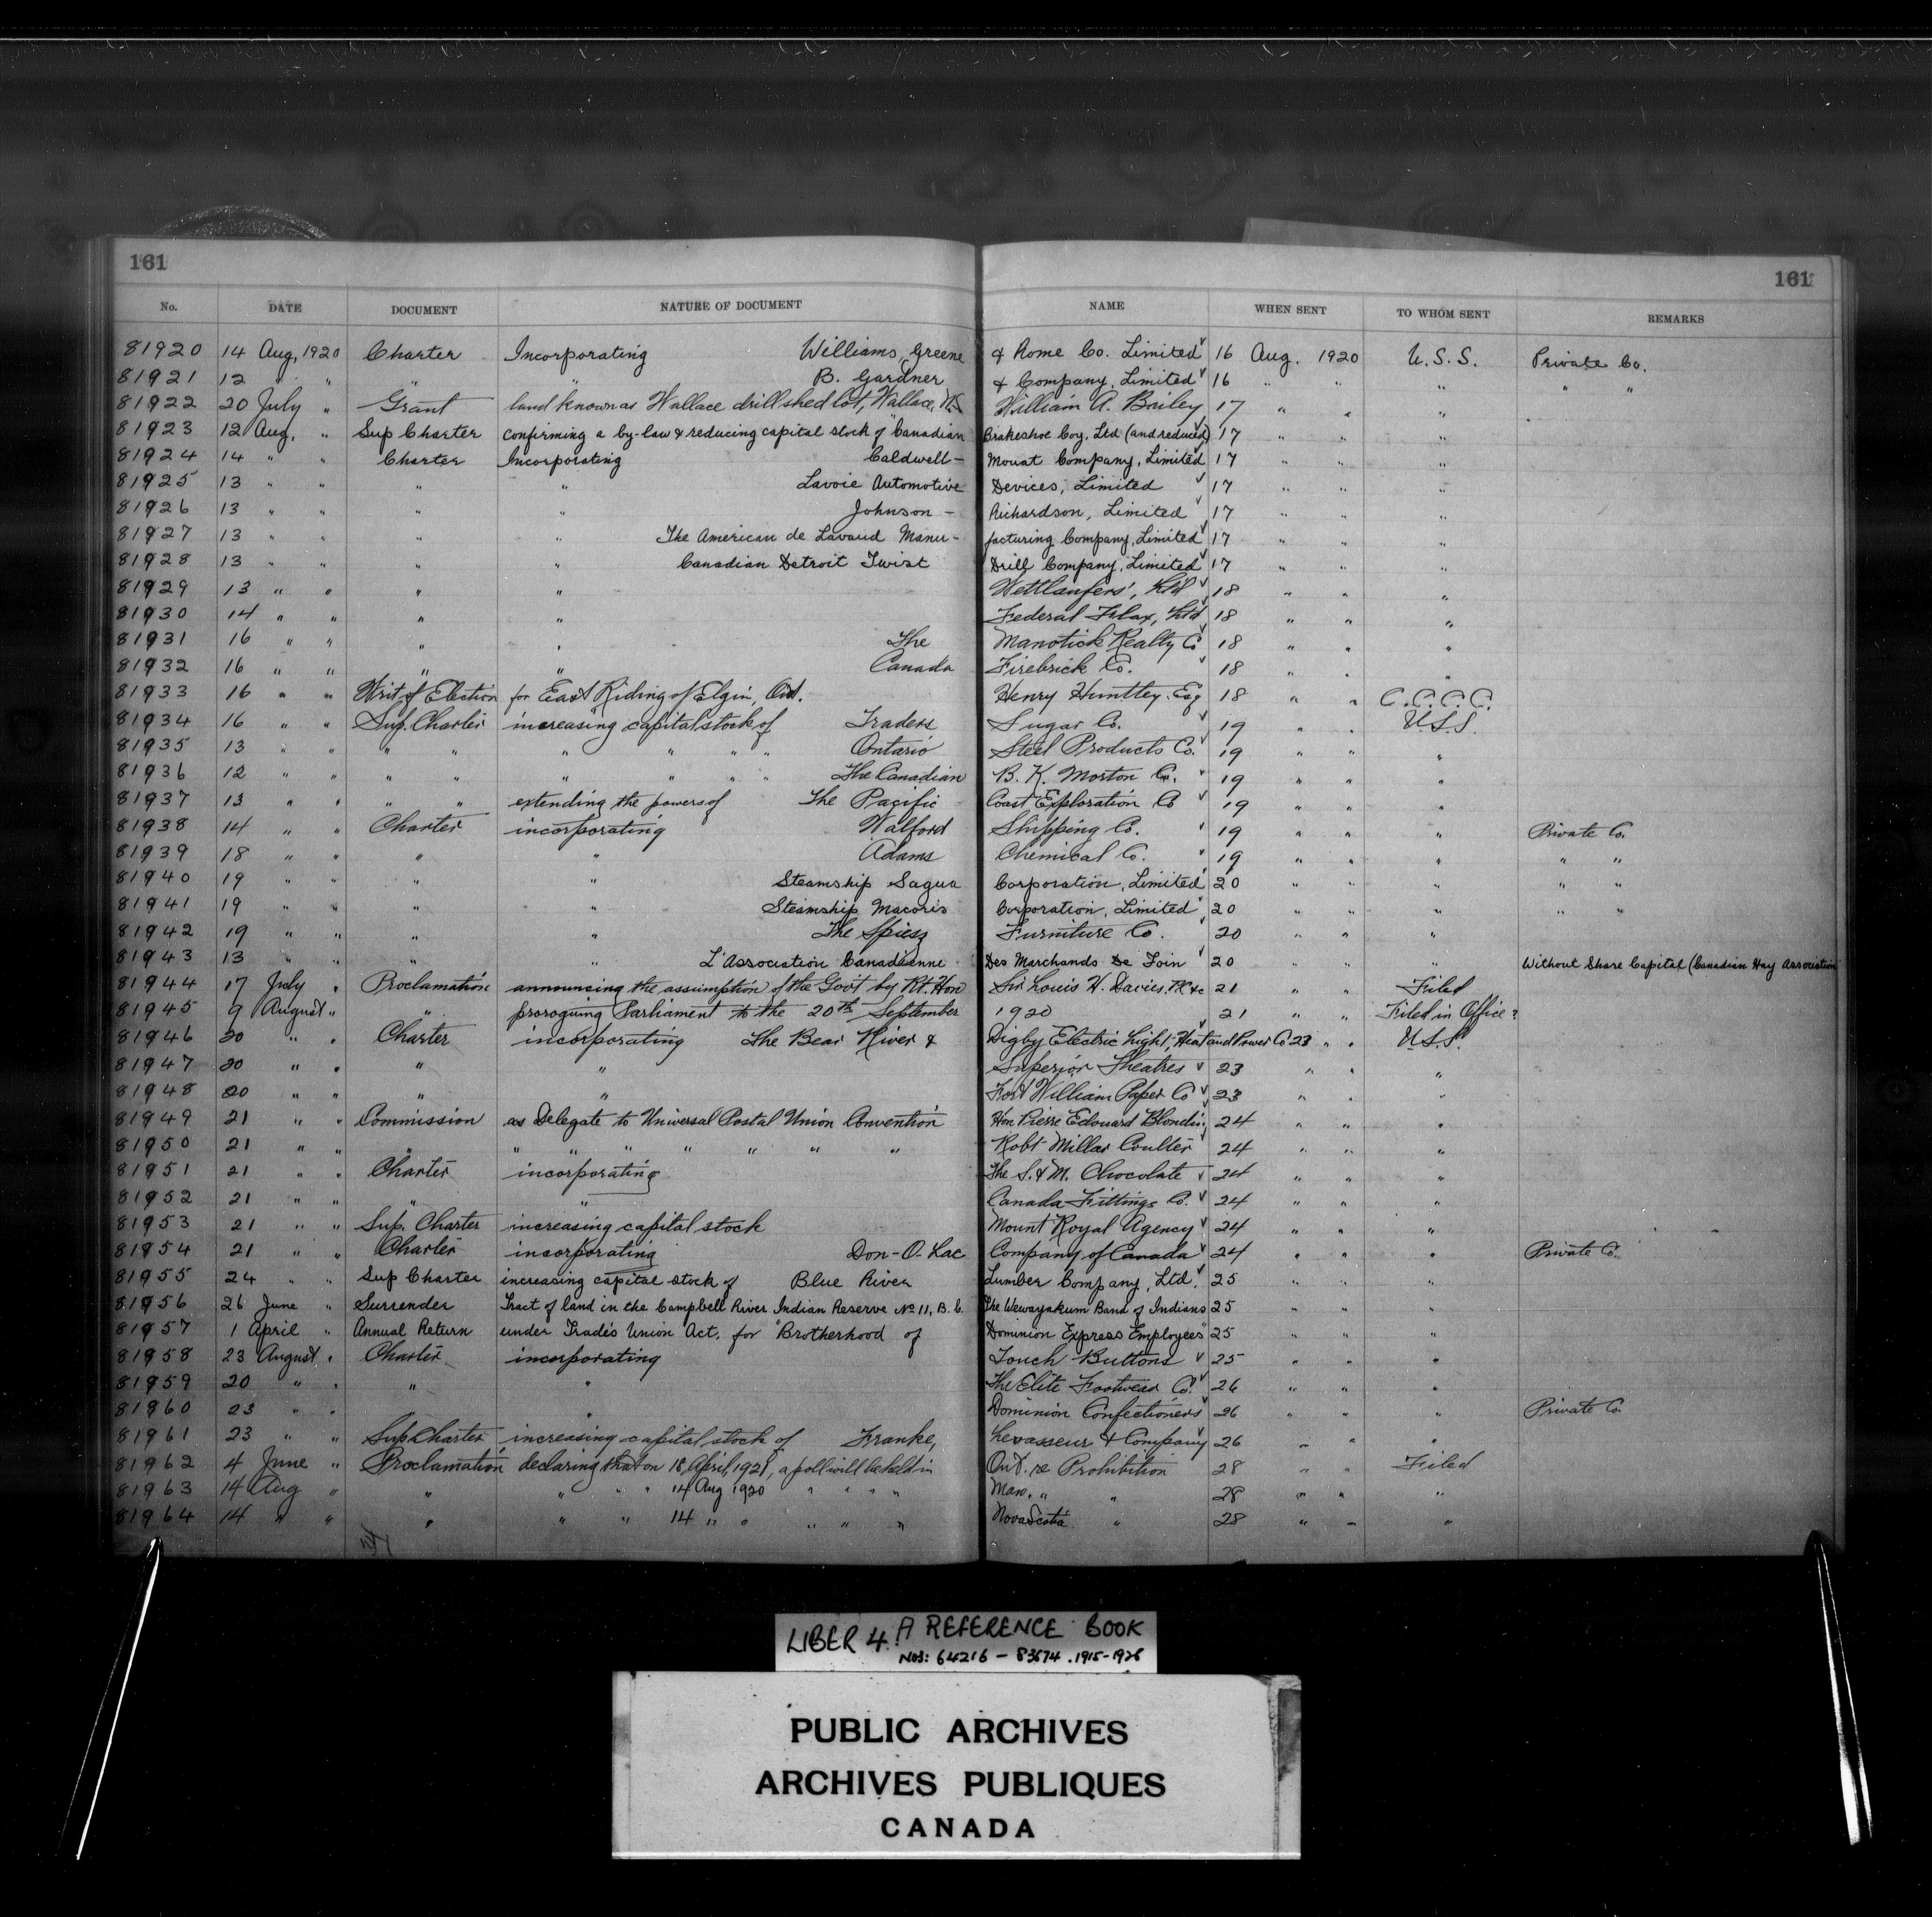 161 161
No. DATE DOCUMENT NATURE OF DOCUMENT NAME WHEN SENT TO WHOM SENT REMARKS
81920 14 Aug, 1920 Charter Incorporating Williams, Greene & Rome Co. Limited √ 16 Aug. 1920 U.S.S. Private Co.
81921 12 " " " " B. Gardner & Company, Limited √ 16 " " " " "
81922 20 July " Grant land known as Wallace drill shed lot, Wallace, N.S. William A. Bailey 17 " " "
81923 12 Aug, " Sup Charter confirming a by-law & reducing capital stock of "Canadian Brakeshoe Coy, Ltd (and reduced) 17 " " "
81924 14 " " Charter Incorporating Caldwell- Mouat Company, Limited 17 " " "
81925 13 " " " " Lavoie Automotive Devices, Limited √ 17 " " "
81926 13 " " " " Johnson - Richardson, Limited √ 17 " " "
81927 13 " " " " The American de Lavaud Manu- facturing Company, Limited √ 17 " " "
81928 13 " " " " Canadian Detroit Twist Drill Company, Limited √ 17 " " "
81929 13 " " " " Wettlaufers', Ltd √ 18 " " "
81930 14 " " " " Federal Flax, Ltd √ 18 " " "
81931 16 " " " " The Manotick Realty Co √ 18 " " "
81932 16 " " " " Canada Firebrick Co. √ 18 " " "
81933 16 " " Writ of Election for East Riding of Elgin, Ont. Henry Huntley. Esq 18 " " C.C.C.C.
81934 16 " " Sup. Charter increasing capital stock of Traders Sugar Co. √ 19 " " U.S.S.
81935 13 " " " " " " " " Ontario Steel Products Co. √ 19 " " "
81936 12 " " " " " " " " The Canadian B. K. Morton Co. √ 19 " " "
81937 13 " " " " extending the powers of The Pacific Coast Exploration Co √ 19 " " "
81938 14 " " Charter incorporating Walford Shipping Co. √ 19 " " " Private Co.
81939 18 " " " " Adams Chemical Co. √ 19 " " " " "
81940 19 " " " " Steamship Sagua Corporation, Limited √ 20 " " " " "
81941 19 " " " " Steamship Macoris Corporation, Limited √ 20 " " " " "
81942 19 " " " " The Spiesz Furniture Co. √ 20 " " "
81943 13 " " " " L'Association Canadienne Des Marchands De Foin √ 20 " " " Without Share Capital (Canadian Hay Association
81944 17 July " Proclamation announcing the assumption of the Gov't by Rt. Hon Sir Louis H. Davies, P.C. &c 21 " " Filed
81945 9 August " " proroguing Parliament to the 20th September 1920 21 " " Filed in Office?
81946 20 " " Charter incorporating The Bear River & Digby Electric Light, Heat and Power Co √ 23 " " U.S.S.
81947 20 " " " " Superior Theatres √ 23 " " "
81948 20 " " " " Fort William Paper Co √ 23 " " "
81949 21 " " Commission as Delegate to Universal Postal Union Convention Hon Pierre Edouard Blondin, √ 24 " " "
81950 21 " " " " " " " " " " Robt Millar Coulter √ 24 " " "
81951 21 " " Charter incorporating The S. & M. Chocolate √ 24 " " "
81952 21 " " " " Canada Fittings Co. √ 24 " " "
81953 21 " " Sup. Charter increasing capital stock Mount Royal Agency √ 24 " " "
81954 21 " " Charter incorporating Don-O-Lac Company of Canada √ 24 " " " Private Co.
81955 24 " " Sup Charter increasing capital stock of Blue River Lumber Company, Ltd. √ 25 " " "
81956 26 June " Surrender Tract of land in the Campbell River Indian Reserve No 11, B.C. The Wewayakum Band of Indians 25 " " "
81957 1 April " Annual Return under Trades Union Act. for "Brotherhood of Dominion Express Employees" 25 " " "
81958 23 August " Charter incorporating Touch Buttons √ 25 " " "
81959 20 " " " " The Elite Footwear Co. √ 26 " " "
81960 23 " " " Dominion Confectioners √ 26 " " " Private Co.
81961 23 " " Sup Charter increasing capital stock of Franke, Levasseur & Company √ 26 " " "
81962 4 June " Proclamation declaring that on 18, April, 1921, a poll will be held in Ont. re Prohibition 28 " " Filed
81963 14 Aug " " " " " 14 Aug 1920 " " " " Man. " " 28 " " "
81964 14 " " " " " 14 " " " " " Nova Scotia " 28 " " "
LIBER 4. A REFERENCE BOOK
NOS: 64216 - 83674 . 1915-1926
PUBLIC ARCHIVES
ARCHIVES PUBLIQUES
CANADA